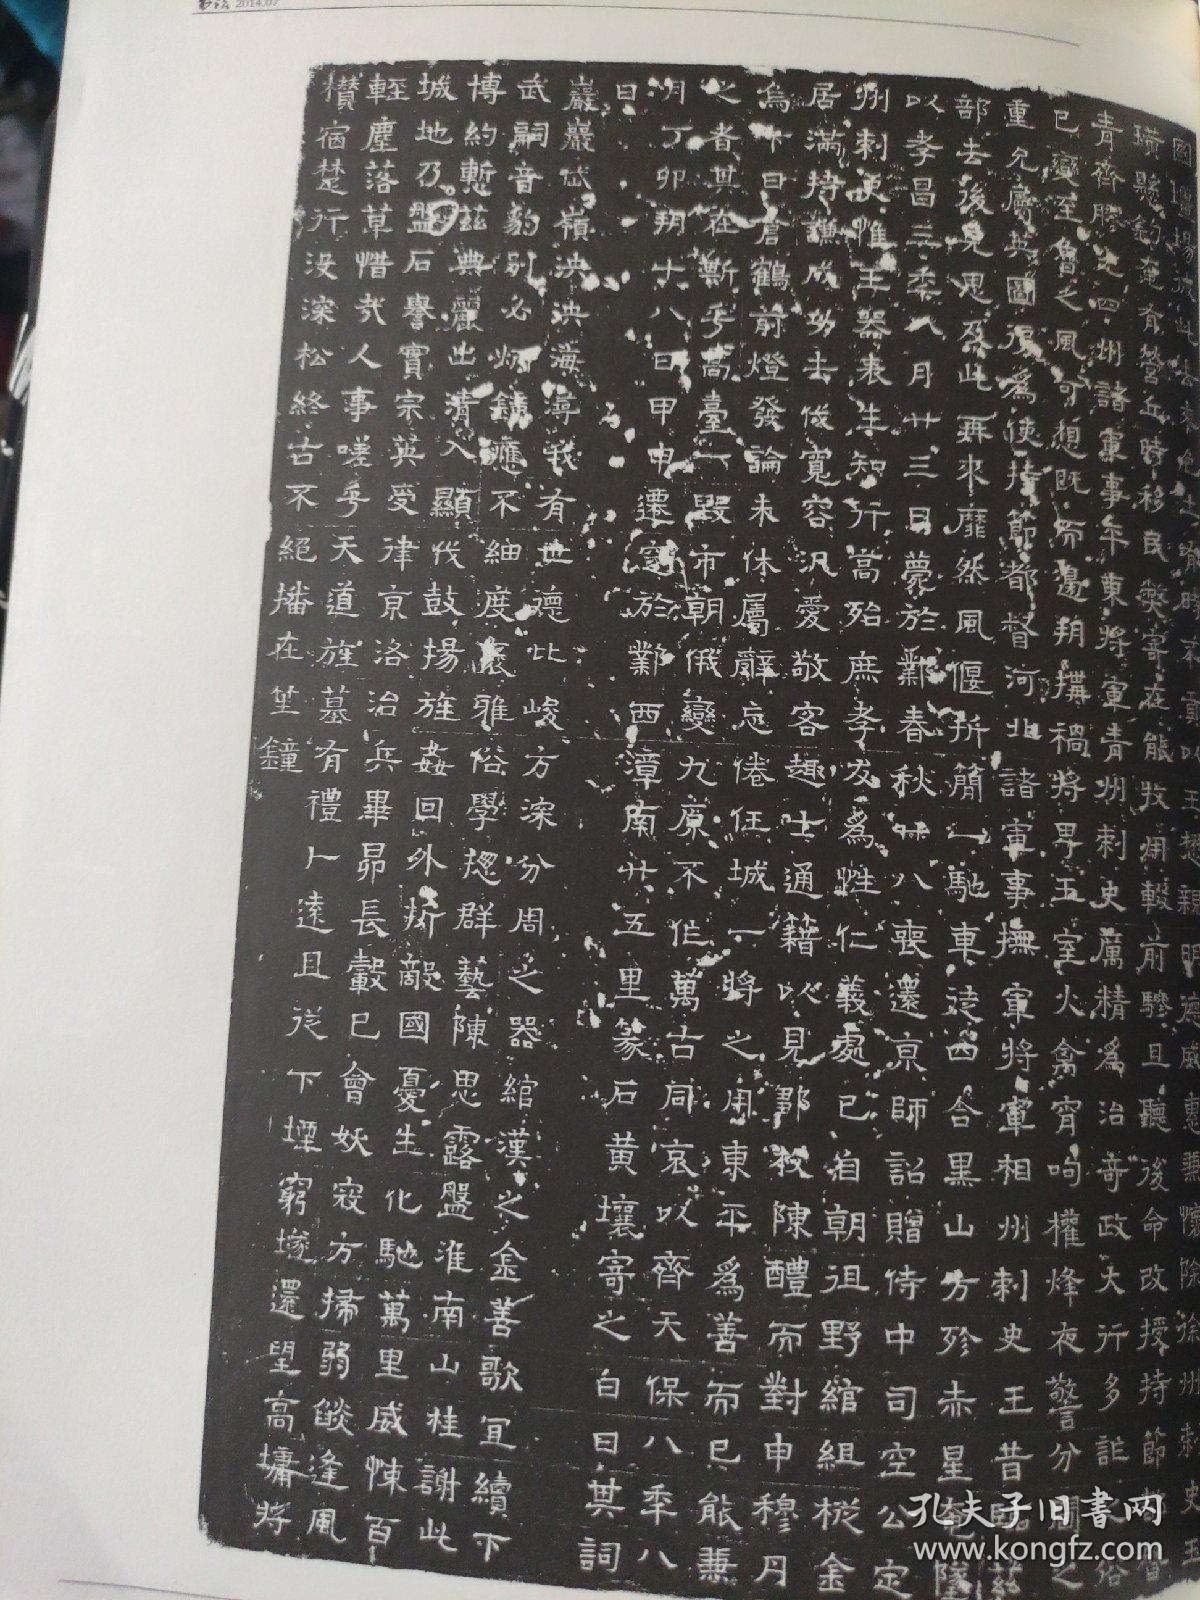 书法 2014.07
青齊膠光四州諸軍事年東將軍青州刺史厲精為治奇政大行多訨俗
已變至魯之風可想既而邊朔搆禍將畀王室火禽宵响權烽夜警分閫之
重允屬英圖復為使持節都督河北諸軍事撫軍將軍相州刺史王昔臨茲
部去後見思及此再來靡然風偃折簡一馳車徒四合黑山方殄赤星奄墜
以孝昌三秊八月廿三日薨於鄴春秋卌八喪還京師詔贈侍中司空公定
州刺史惟王器表生知行高殆庶孝友為性仁義處己自朝徂野綰組樅金
居滿持謙成功去伐寬容汎愛敬客趣士通籍以見鄒枚陳醴而對申穆丹
烏下日倉鶴前燈發論未休屬辭忘倦任城一將之用東平為善而已能兼
之者其在斯乎高臺一毀市朝俄變九原不作萬古同哀以齊天保八秊八
月丁卯朔十八日甲申遷窆於鄴西漳南廿五里篆石黃壤寄之白日其詞
曰
巖巖岱嶺泱泱海濤我有世德比峻方深分周之器綰漢之金善歌宜續下
武嗣音豹別必炳鍾應不細度褱雅俗學摠群藝陳思露盤淮南山桂謝此
博約慙茲典麗出清入顯伐鼓揚旌姦回外折敵國憂生化馳萬里威悚百
城地乃盤石譽實宗英受律京洛治兵畢昴長轂已會妖寇方掃弱燄逢風
輕塵落草惜哉人事嗟乎天道旌墓有禮卜遠且從下堙窮塜還望高墉將
櫕宿楚行沒深松終古不絕播在笙鐘
孔夫子旧书网
www.kongfz.com